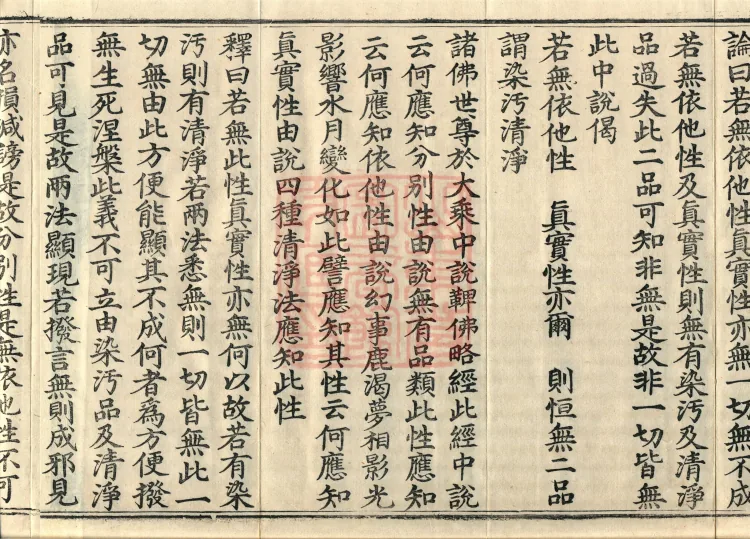 論曰若無依他性真實性亦無一切無不成
若無依他性及真實性則無有染汚及清淨
品過失此二品可知非無是故非一切皆無
此中說偈
若無依他性　眞實性亦爾　則恒無二品
謂染汚清淨
諸佛世尊於大乘中說鞞佛略經此經中說
云何應知分別性由說無有品類此性應知
云何應知依他性由說幻事鹿渴夢相影光
影響水月變化如此譬應知其性云何應知
眞實性由說四種清淨法應知此性
釋曰若無此性眞實性亦無何以故若有染
汚則有清淨若兩法悉無則一切皆無此一
切無由此方便能顯其不成何者爲方便撥
無生死涅槃此義不可立由染汚品及清淨
品可見是故兩法顯現若撥言無則成邪見
亦名損減謗是故分別性是無依他性不可